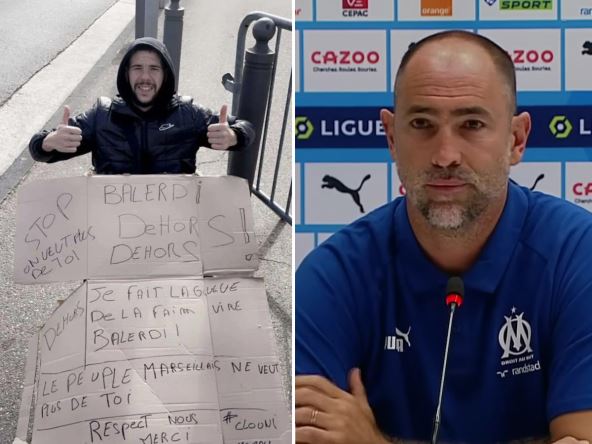 STOP
ON VEUT PLUS
DE TOI
BALERDI
DEHORS!
DEHORS
DEHORS
JE FAIT LA GREVE
DE LA FAIM VIRE
BALERDI!
LE PEUPLE MARSEILLAIS NE VEUT
PLUS DE TOI
RESPECT NOUS
MERCI
CEPAC
orange
SPORT
CAZOO
Cherchez. Roulez.
CAZOO
LIGUE
DROIT AU BUT
randstad